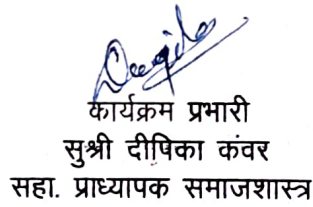 कार्यक्रम प्रभारी
सुश्री दीपिका कंवर
सहा. प्राध्यापक समाजशास्त्र